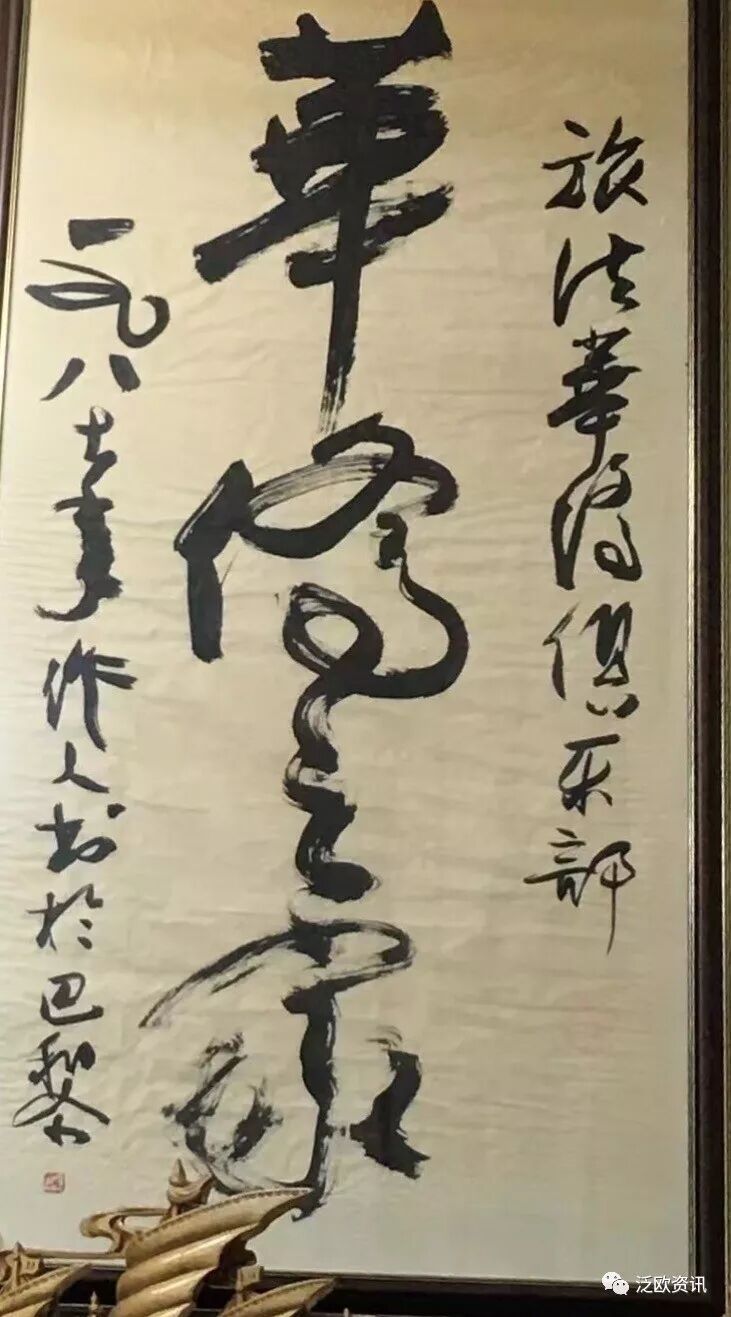 旅法華僑俱乐部
華僑之家
一九八七年作人书於巴黎
泛欧资讯